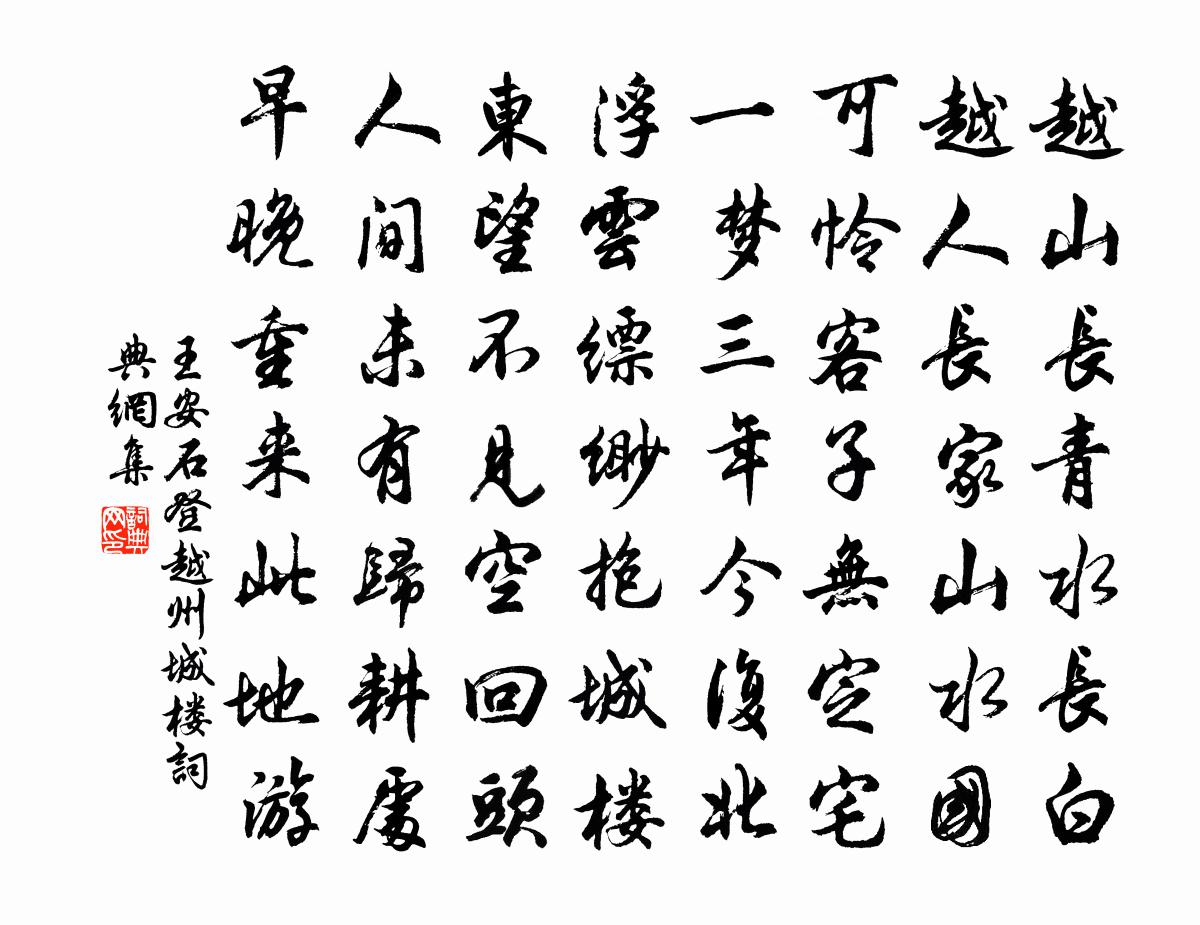 越山長青水長白
越人長家山水國
可怜客子無定宅
一梦三年今復北
浮雲縹缈抱城楼
東望不見空回頭
人间未有歸耕處
早晚重来此地游
王安石登越州城楼詞
典網集
詞典网印